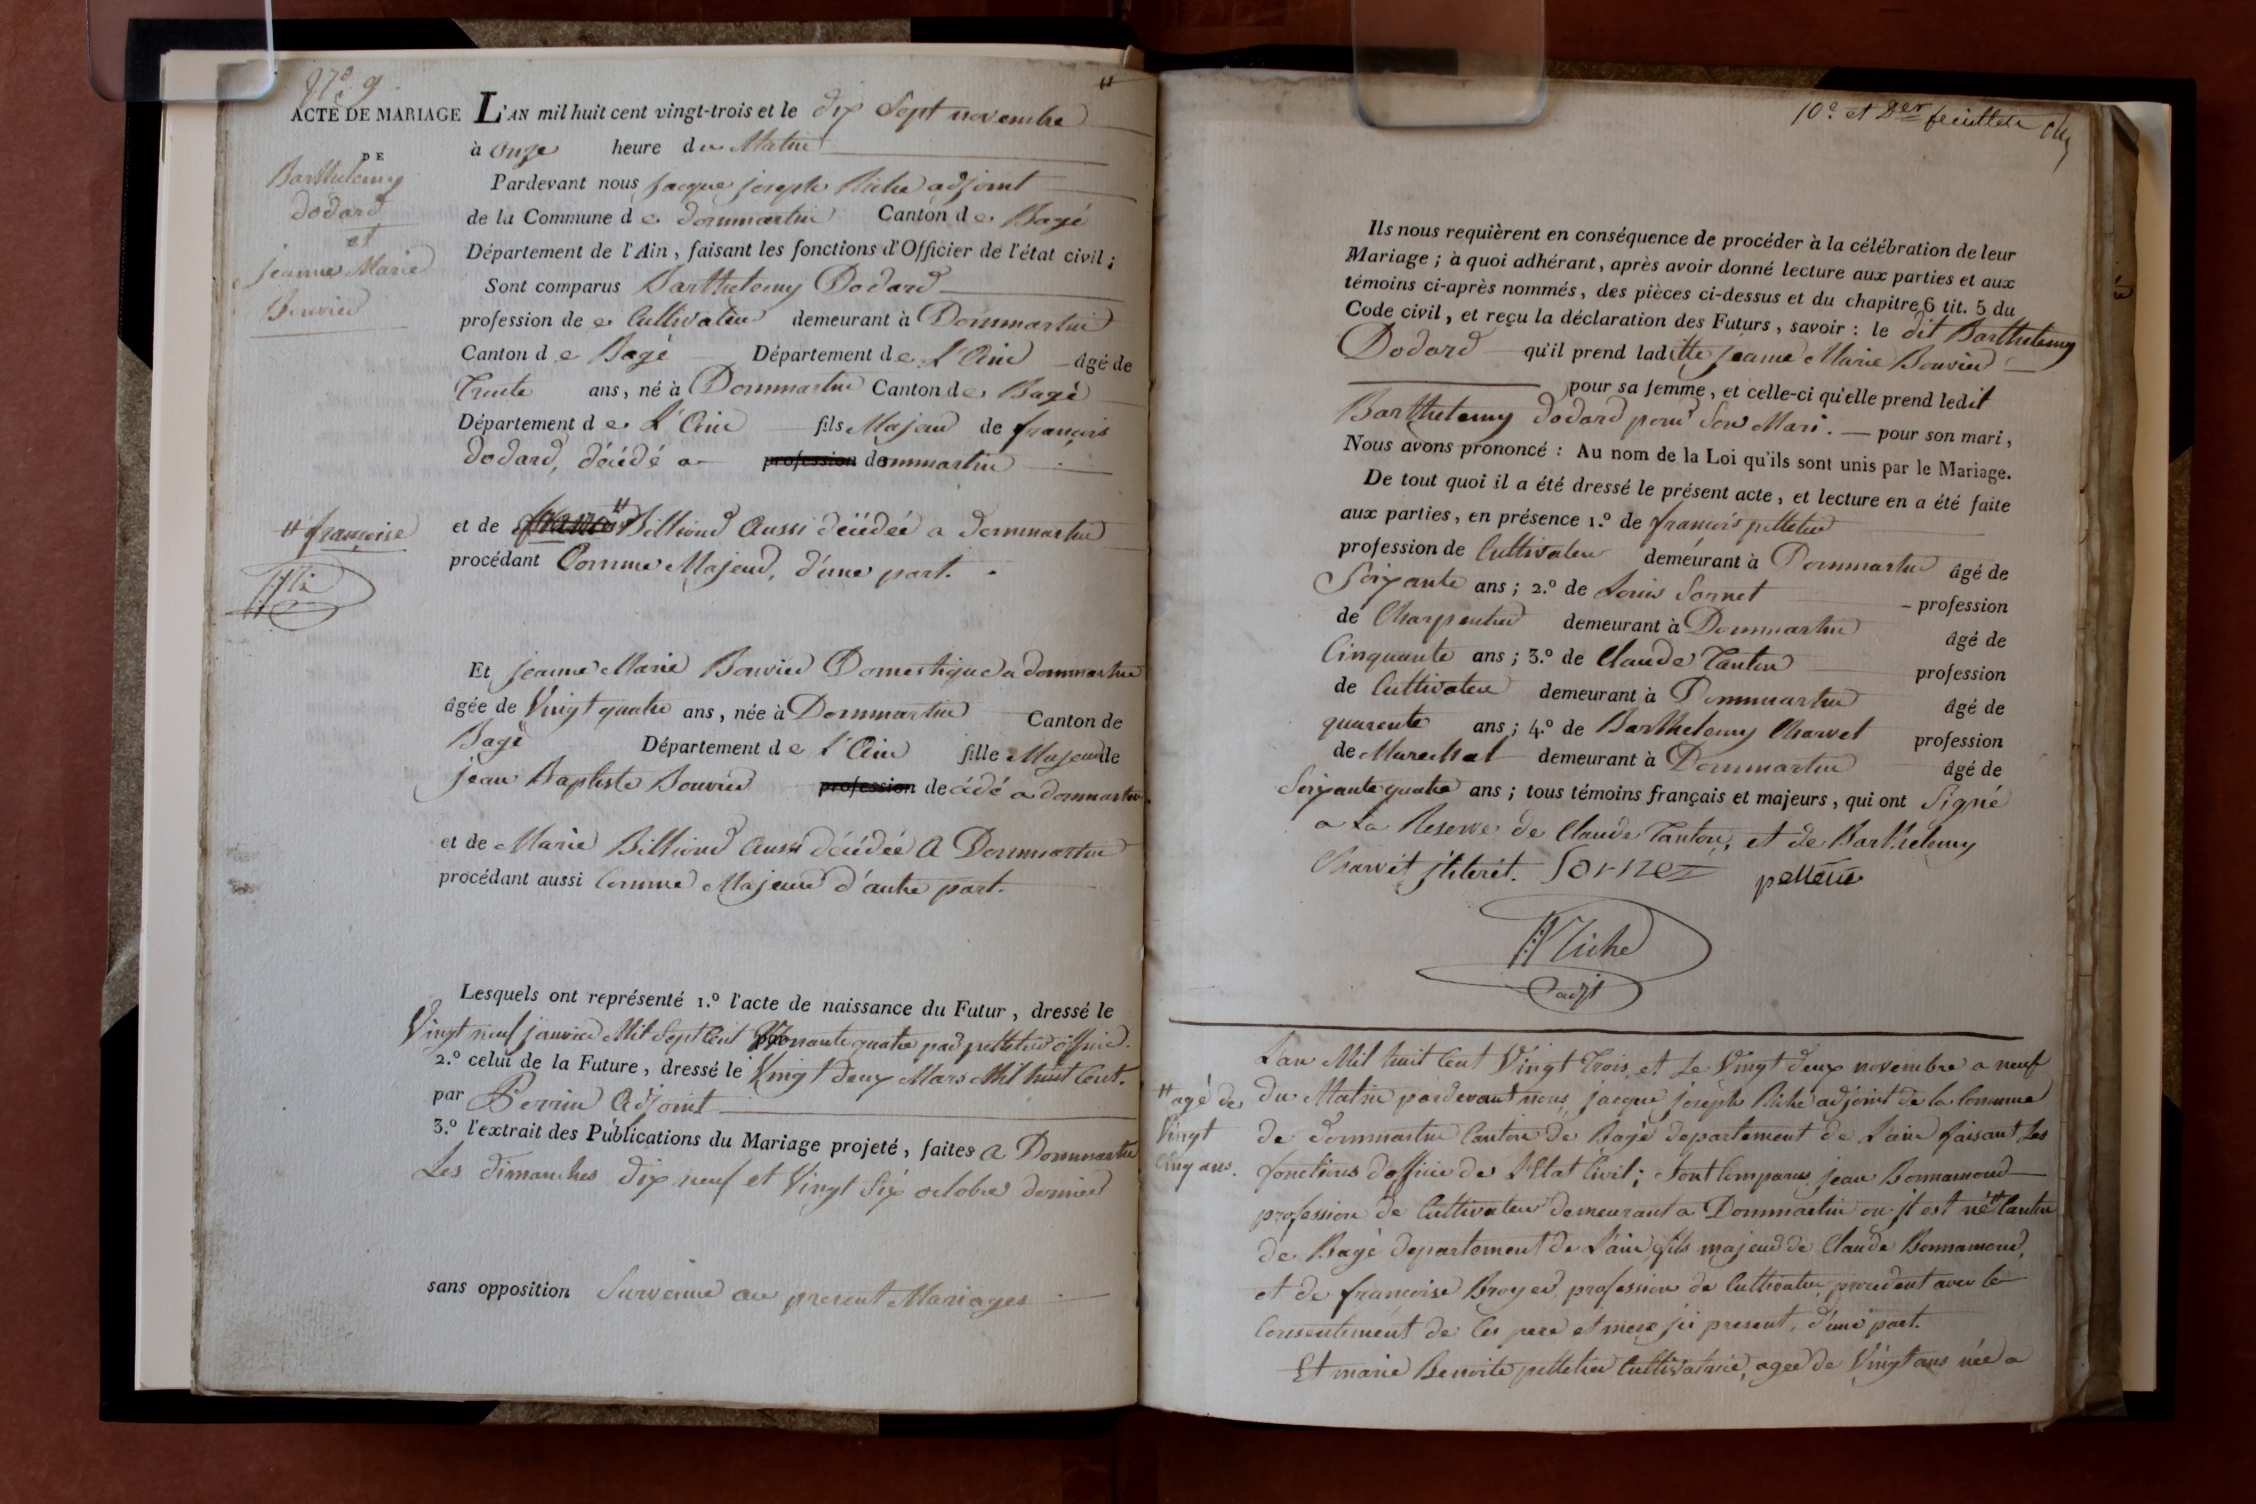 N.º 9.
ACTE DE MARIAGE
DE
Barthelemy
dodard
et
jeanne Marie
Bouvier
L'AN mil huit cent vingt-trois et le dix Sept novembre
à onze heure du Matin
Pardevant nous jacque joseph Riche adjoint
de la Commune de dommartin Canton de Bagé
Département de l'Ain, faisant les fonctions d'Officier de l'état civil;
Sont comparus Barthelemy Dodard
profession de Cultivateur demeurant à Dommartin
Canton de Bagé Département de L'Ain âgé de
Trente ans, né à Dommartin Canton de Bagé
Département de L'Ain fils Majeur de françois
dodard, décédé a profession dommartin
et de Billioud Aussi décédée a dommartin
# françoise
procédant Comme Majeur, d'une part.
Et jeanne Marie Bouvier Domestique a dommartin
âgée de Vingt quatre ans, née à Dommartin Canton de
Bagé Département de L'Ain fille Majeur de
jean Baptiste Bouvier profession decédé a dommartin
et de Marie Billioud Aussi décédée A Dommartin
procédant aussi Comme Majeure d'autre part.
Lesquels ont représenté 1.º l'acte de naissance du Futur, dressé le
Vingt neuf janvier Mil Sept Cent nonante quatre par pelletier officier.
2.º celui de la Future, dressé le Vingt deux Mars Mil huit Cent.
par Perrin Adjoint
3.º l'extrait des Publications du Mariage projeté, faites A Dommartin
Les dimanches dix neuf et Vingt Six octobre dernier
sans opposition Survenue au present Mariages
10.e et Der feuillet
Ils nous requièrent en conséquence de procéder à la célébration de leur
Mariage; à quoi adhérant, après avoir donné lecture aux parties et aux
témoins ci-après nommés, des pièces ci-dessus et du chapitre 6 tit. 5 du
Code civil, et reçu la déclaration des Futurs, savoir: le dit Barthelemy
Dodard qu'il prend laditte jeanne Marie Bouvier
pour sa femme, et celle-ci qu'elle prend ledit
Barthelemy dodard pour Son Mari. — pour son mari,
Nous avons prononcé: Au nom de la Loi qu'ils sont unis par le Mariage.
De tout quoi il a été dressé le présent acte, et lecture en a été faite
aux parties, en présence 1.º de françois pelletier
profession de Cultivateur demeurant à Dommartin âgé de
Soixante ans; 2.º de Louis Sornet profession
de Charpentier demeurant à Dommartin âgé de
Cinquante ans; 3.º de Claude Tanton profession
de Cultivateur demeurant à Dommartin âgé de
quarente ans; 4.º de Barthelemy Charvet profession
de Marechal demeurant à Dommartin âgé de
Soixante quatre ans; tous témoins français et majeurs, qui ont Signé
a La Reserve de Claude Tanton, et de Barthelemy
Charvet jlliteret. Sornez pelletie
Riche
adjt
L'an Mil huit Cent Vingt Trois et Le Vingt deux novembre a neuf
du Matin pardevant nous jacque joseph Riche adjoint de la Commune
de dommartin Canton de Bagé departement de L'ain faisant les
fonctions d'officier de L'Etat Civil; Sont Comparus jean Bonnamour
profession de Cultivateur demeurant a Dommartin ou jl est né # Canton
# agé de
Vingt
Cinq ans.
de Bagé departement de L'ain fils majeur de Claude Bonnamour,
et de françoise Broyer profession de Cultivateur, procedent avec le
Consentement de Ces pere et mere jci present, d'une part.
Et marie Benoite pelletier Cultivatrice, agee de Vingt ans née a